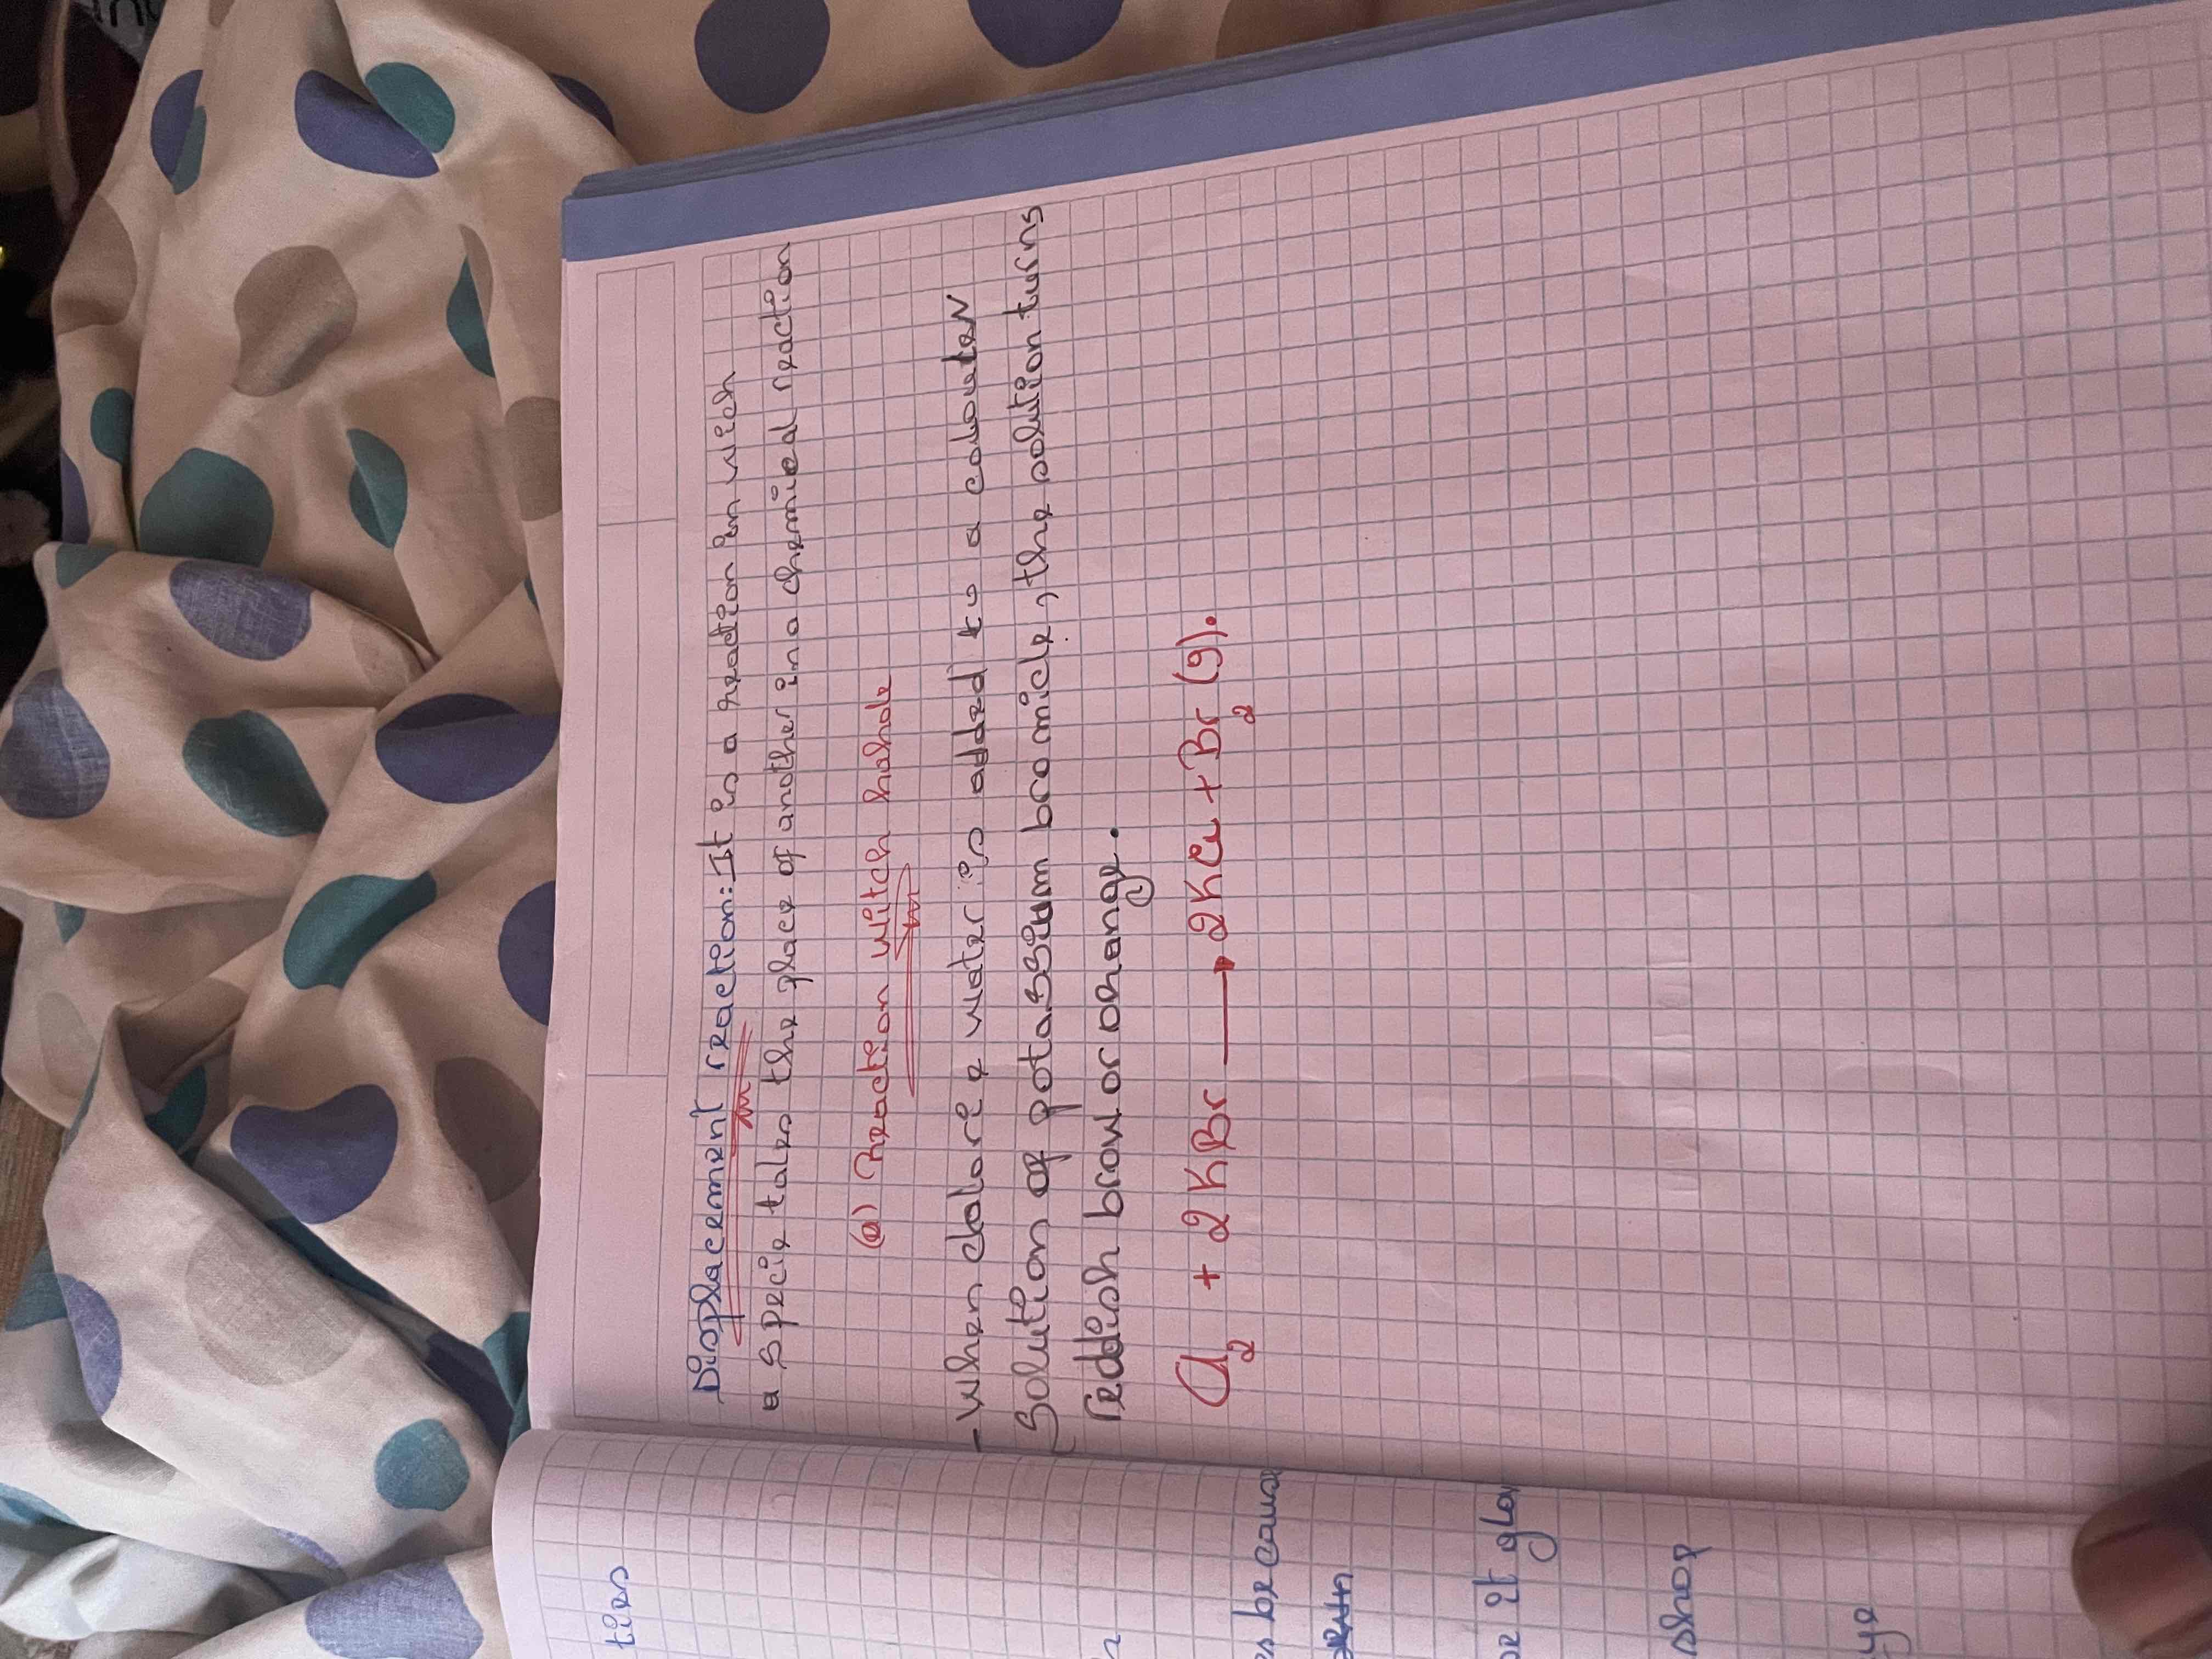 Displacement reaction: It is a reaction in wich
a specie takes the place of another in a chemical reaction
(a) Reaction witch halide
- When chlorine water is added to a colourless
Solution of potassium bromide, the solution turns
reddish brown or orange.
Cl2 + 2KBr → 2KCl + Br2 (g).
ties
es because
e it glo
shop
ye